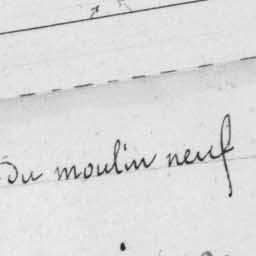 Du moulin neuf